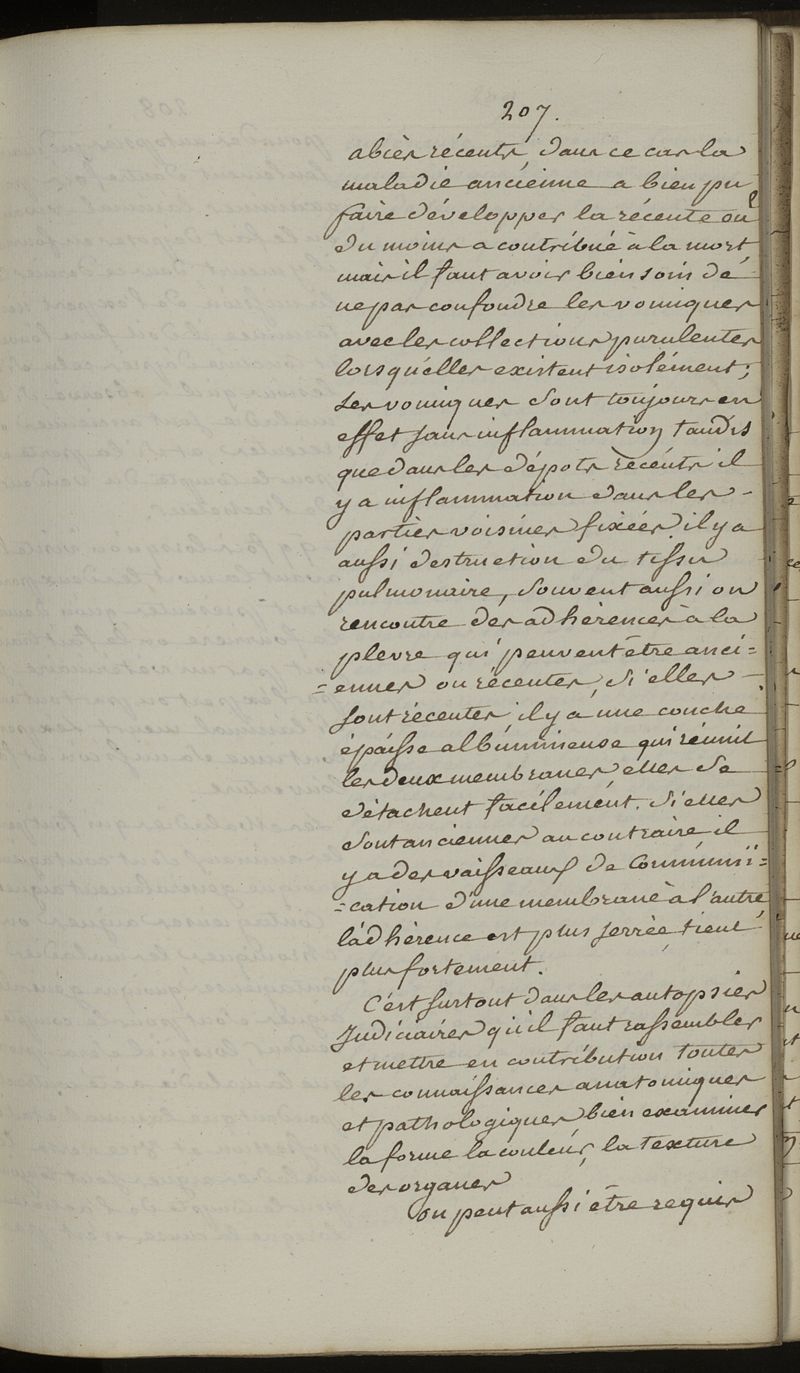 207.
abcès récents, dans ce cas la
maladie ancienne a bien pu
faire développer la récente ou
du moins a contribué à la mort
mais il faut avoir bien soin de
ne pas confondre les vomiques
avec les collections purulentes
lorsqu'elles existent isolément;
Les vomiques sont toujours en
effet sans inflammation tandis
que dans les dépots récents il
y a inflammation dans les -
parties voisines fixées. il y a
aussi destruction du tissu
pulmonaire, souvent aussi on
rencontre des adhérences à la
plevre qui peuvent être anci=
=ennes ou récentes, si elles -
sont récentes, il y a une couche
épaisse albumineuse qui réunit
les deux membranes elles se
détachent facilement. si elles
sont anciennes au contraire il
y a des vaisseaux de communi=
=cation d'une membrane à l'autre
l'adhérence est plus serrée, tient
plus fortement.
C'est surtout dans les autopsies
Judiciaires qu'il faut rassembler
et mettre en contribution toutes
les connaissances anatomiques
et pathologiques, bien examiner
la forme la couleur, la texture
des organes
on peut aussi être requis